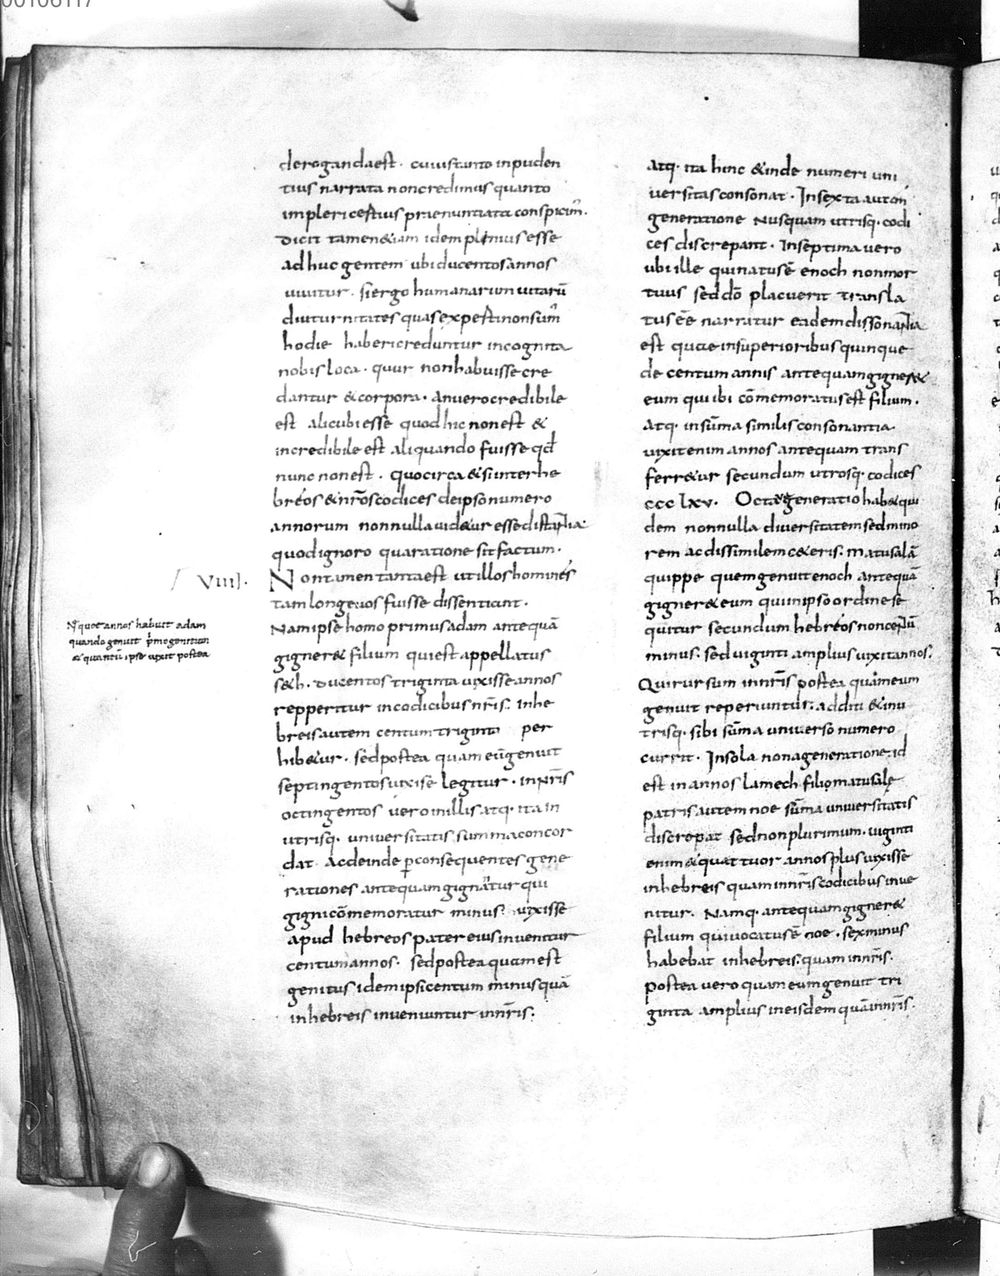 00106117
derogandaest. cuius tanto inpuden
tius narrata non credimus quanto
impleri certius praenuntiata conspicim̄.
Dicit tamen &iam idem plinius esse
adhuc gentem ubi ducentos annos
uiuitur. Si ergo humanarum uitarū
diuturnitates quas experti non sum̄
hodie haberi creduntur incognita
nobis loca. quur non habuisse cre
dantur & corpora. an uero credibile
est alicubi esse quod hic non est &
incredibile est aliquando fuisse qd̄
nunc non est. Quocirca &si inter he
breos & nr̄os codices de ipso numero
annorum nonnulla uid&ur esse distantia
quod ignoro qua ratione sit factum.
VIIII.
Non tamen tanta est ut illos homines
tam longeuos fuisse dissentiant.
N̄ quot annos habuit adam
quando genuit p̄mogenitum
& quantū ipse uixit postea
Nam ipse homo primus adam antequā
gigner& filium qui est appellatus
s&h. Ducentos triginta uixisse annos
repperitur in codicibus nr̄is. In he
breis autem centum triginta per
hib&ur. sed postea quam eū genuit
septingentos uixise legitur. in nr̄is
octingentos uero in illis atq. ita in
utrisq. uniuersitatis summa concor
dat. Ac deinde p̄ consequentes gene
rationes antequam gignatur qui
gigni cōmemoratur minus uixisse
apud hebreos pater eius inuenitur
centum annos. sed postea quam est
genitus idem ipse centum minus quā
in hebreis inueniuntur in nr̄is.
Atq. ita hinc & inde numeri uni
uersitas consonat. In sexta autem
generatione nusquam utrisq. codi
ces discrepant. In septima uero
ubi ille qui natus ē enoch non mor
tuus sed dō placuerit transla
tus eē narratur eadem dissonantia
est quae in superioribus quinque
de centum annis antequam gigner&
eum qui ibi cōmemoratus est filium.
Atq. in sūma similis consonantia.
uixit enim annos antequam trans
ferr&ur secundum utrosq. codices
ccc lxv. Octaua generatio hab& qui
dem nonnulla diuersitatem sed mino
rem ac dissimilem c&eris. matusalā
quippe quem genuit enoch antequā
gigner& eum qui in ipso ordine se
quitur secundum hebreos non centū
minus. sed uiginti amplius uixit annos.
Qui rursum in nr̄is postea quam eum
genuit reperiuntur additi & in u
trisq. sibi sūma uniuerso numero
currit. In sola nona generatione id
est in annos lamech filio matusale
patris autem noe sūma uniuersitatis
discrepat sed non plurimum. uiginti
enim & quattuor annos plus uixisse
in hebreis quam in nr̄is codicibus inue
nitur. Namq. antequam gigner&
filium qui uocatus ē noe. sex minus
habebat in hebreis quam in nr̄is.
postea uero quam eum genuit tri
ginta amplius in eisdem quā in nr̄is.